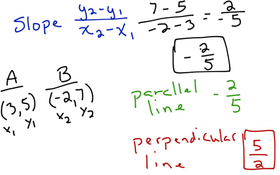 Slope y₂-y₁ / x₂-x₁ 7-5 / -2-3 = 2 / -5
- 2/5
A B
(3,5) (-2,7)
x₁ y₁ x₂ y₂
parallel line - 2/5
perpendicular line 5/2